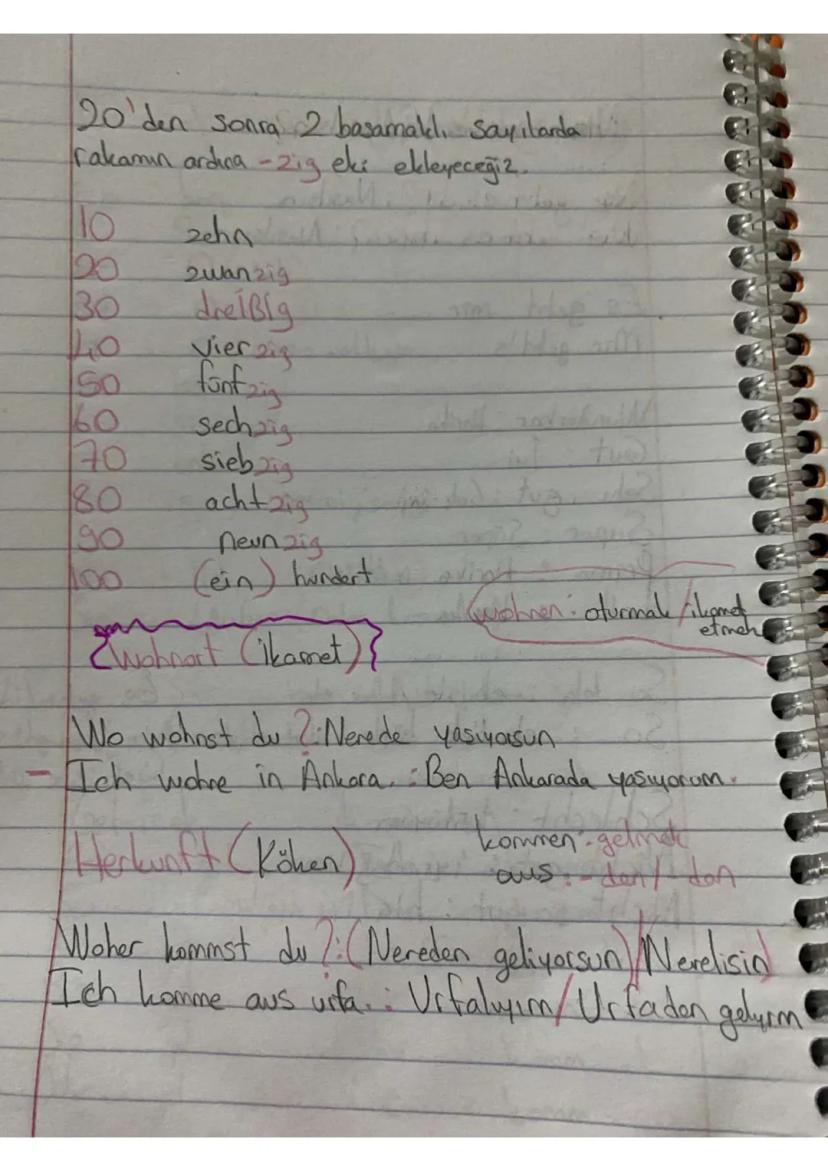 20'den sonra 2 basamaklı sayılarda
rakamın ardına -zig eki ekleyeceğiz.
10 zehn
20 zwanzig
30 dreißig
40 vierzig
50 fünfzig
60 sechzig
70 siebzig
80 achtzig
90 neunzig
100 (ein) hundert
wohnen: oturmak / ikamet
etmek
Wohnort (ikamet)
Wo wohnst du ?: Nerede yasıyorsun
- Ich wohne in Ankara. : Ben Ankarada yasıyorum.
Herkunft (Köken)
kommen: gelmek
aus: -den / -dan
Woher kommst du ?: (Nereden geliyorsun) / Nerelisin)
Ich komme aus urfa. : Urfalıyım / Urfadan gelyrm